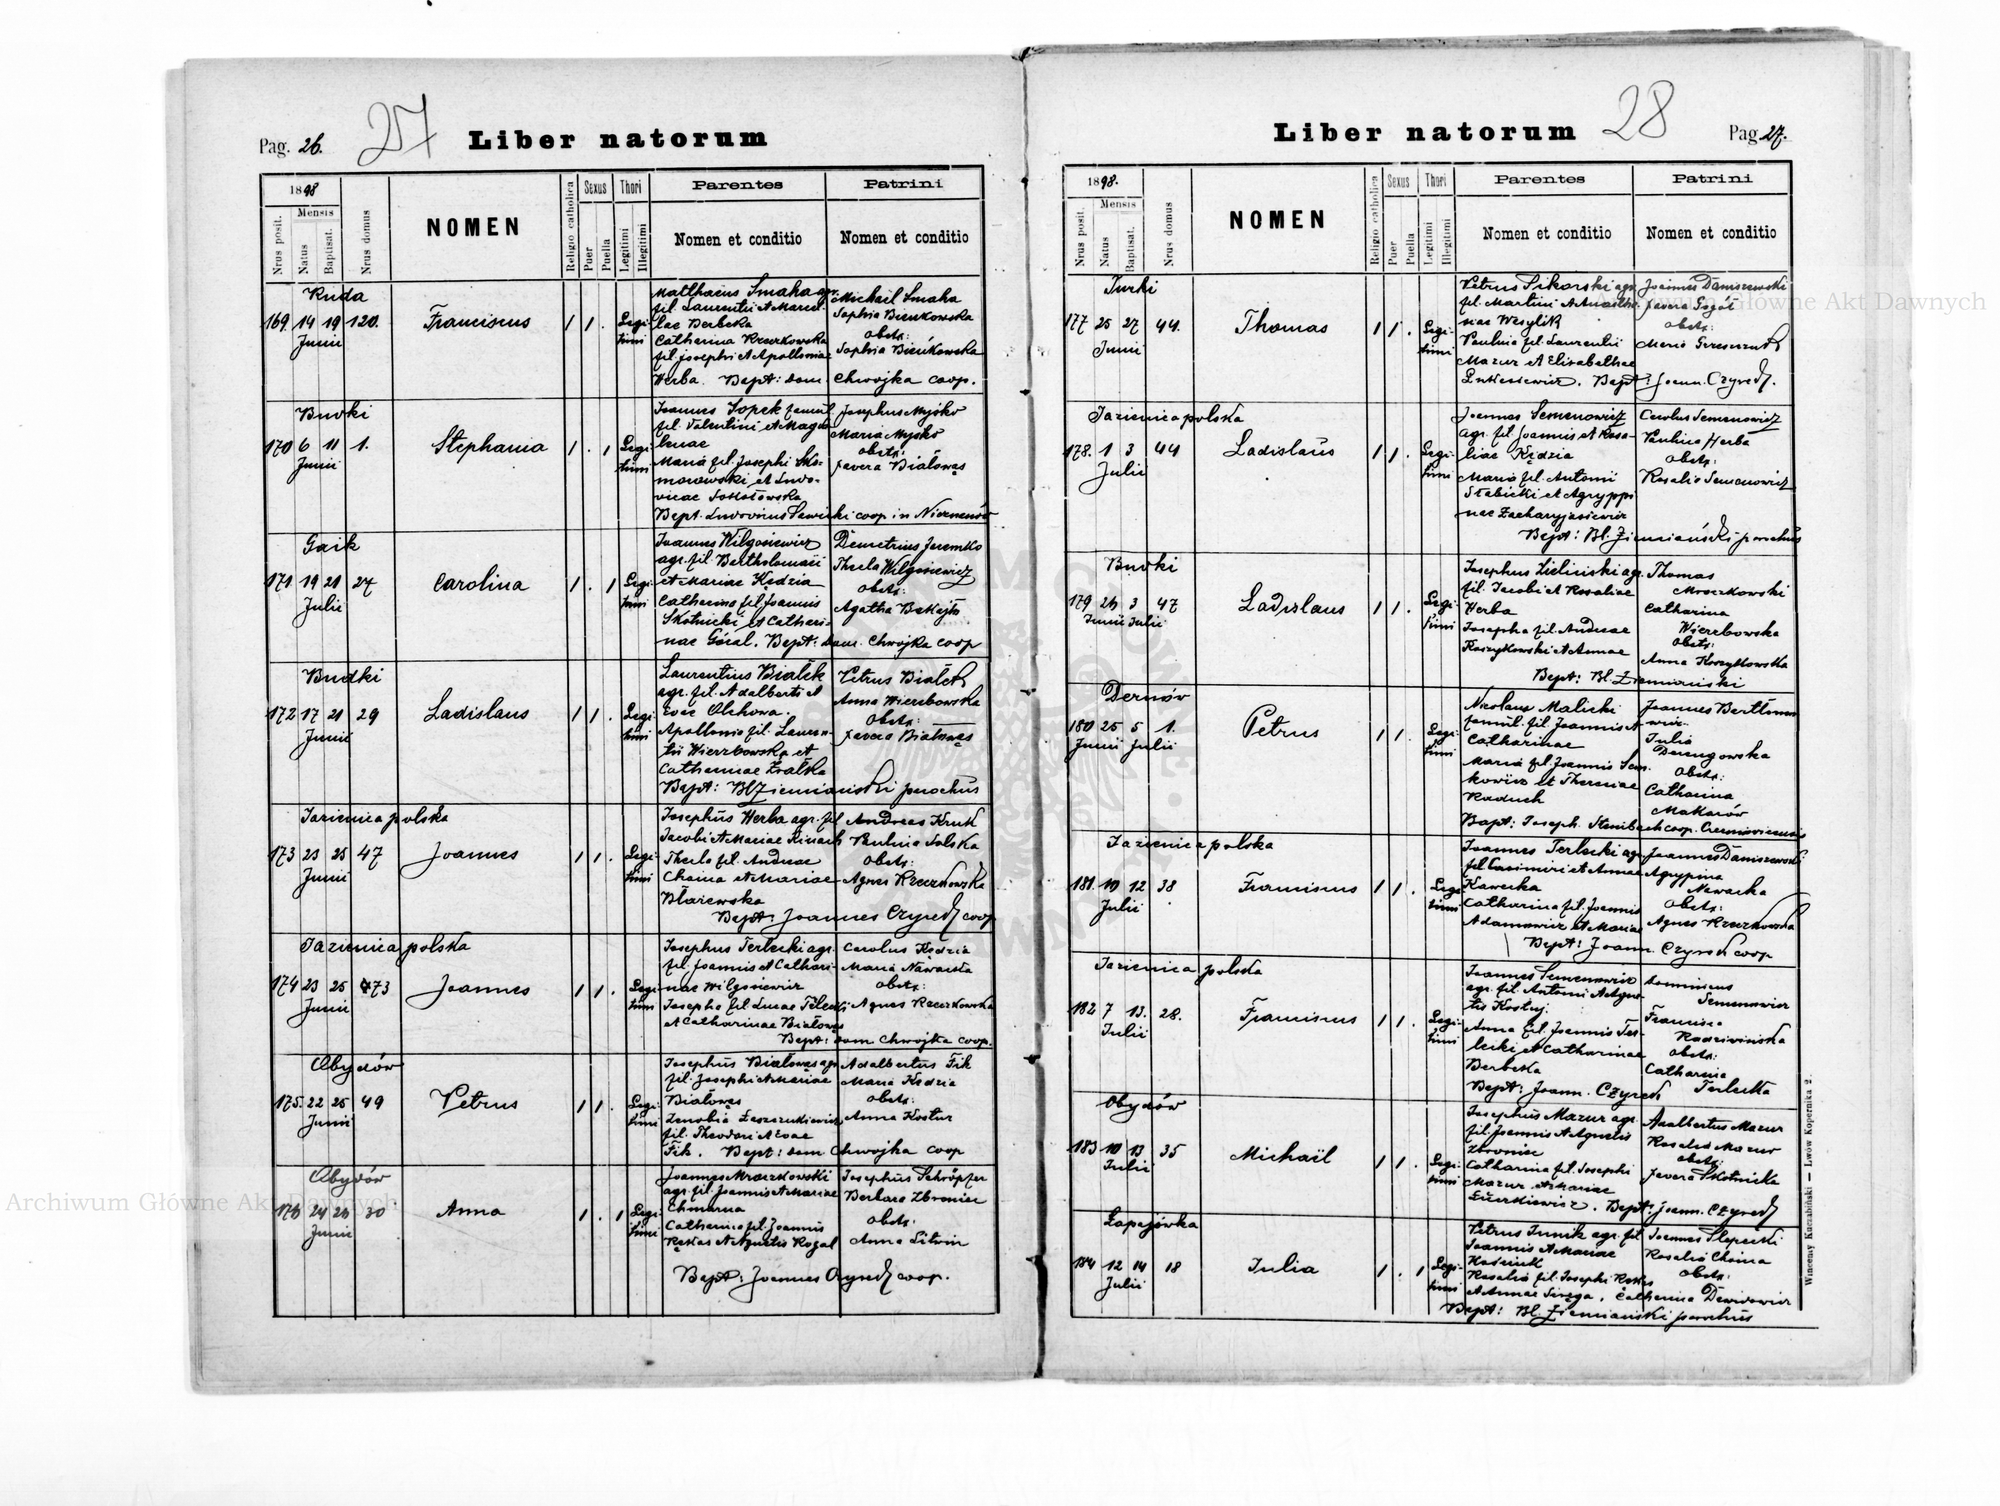 Pag. 26. 27 Liber natorum
1898
Mensis
Nrus posit.
Natus
Baptisat.
Nrus domus
NOMEN
Religio catholica
Sexus
Puer
Puella
Thori
Legitimi
Illegitimi
Parentes
Nomen et conditio
Patrini
Nomen et conditio
Ruda
169. 14 19 120. Franciscus 1 1 . Legi-
Junii timi
Matthaeus Smaha agr.
fil. Laurentii et Marcel-
lae Berbeka
Catharina Kreczkowska
fil. Josephi et Apolloniae
Herba. Bapt: dom. Chwojka coop.
Michaël Smaha
Sophia Bieńkowska
obst:
Sophia Bieńkowska
Budki
170 6 11 1. Stephania 1 . 1 Legi-
Junii timi
Joannes Sopek famul.
fil. Valentini et Magda-
lenae
Maria fil. Josephi Sko-
morowski et Ludo-
vicae Sokołowska
Bapt. Ludovicus Sawicki coop. in
Josephus Myśko
Maria Myśko
obst:
Xavera Białowąs
Gaik
171. 19 21 27 Carolina 1 . 1 Legi-
Julii timi
Joannes Wilgosiewicz
agr. fil. Bartholomaei
et Mariae Kędzia
Catharina fil. Joannis
Skotnicki et Cathari-
nae Góral. Bapt: Dom. Chwojka coop
Demetrius Jaremko
Thecla Wilgosiewicz
obst:
Agatha
Budki
172 17 21 29 Ladislaus 1 1 . Legi-
Junii timi
Laurentius Białek
agr. fil. Adalberti et
Evae Olchowa.
Apollonia fil. Lauren-
tii Wierzbowska et
Catharinae Białka
Bapt: Bl. Ziemiański parochus
Petrus Białek
Anna Wierzbowska
obst:
Xavera Białowąs
Jazienica polska
173 23 25 47 Joannes 1 1 . Legi-
Junii timi
Josephus Herba agr. fil
Jacobi et Mariae
Thecla fil. Andreae
Chaina et Mariae
Błażewska
Bapt: Joannes Czyrek coop
Andreas Kruk
Paulina Solska
obst:
Agnes Kreczkowska
Jazienica polska
174 23 25 73 Joannes 1 1 . Legi-
Junii timi
Josephus Terlecki agr.
fil. Joannis et Cathari-
nae Wilgosiewicz
Josepha fil. Lucae
et Catharinae Białowąs
Bapt: dom Chwojka coop.
Carolus Kędzia
Maria Nawarska
obst:
Agnes Kreczkowska
Obydów
175. 22 25 49 Petrus 1 1 . Legi-
Junii timi
Josephus Białowąs agr
fil. Josephi et Mariae
Białowąs
Zenobia
fil. Theodori et Evae
Fik. Bapt: dom Chwojka coop
Adalbertus Fik
Maria Kędzia
obst:
Anna Kostur
Obydów
176 24 26 30 Anna 1 . 1 Legi-
Junii timi
Joannes Mroczkowski
agr. fil. Joannis et Mariae
Chmarna
Catharina fil. Joannis
Rękas et Agnetis Rogal
Bapt: Joannes Czyrek coop.
Josephus Schröpfer
Barbara Zbroniec
obst:
Anna Litwin
Liber natorum 28 Pag. 27.
1898.
Mensis
Nrus posit.
Natus
Baptisat.
Nrus domus
NOMEN
Religio catholica
Sexus
Puer
Puella
Thori
Legitimi
Illegitimi
Parentes
Nomen et conditio
Patrini
Nomen et conditio
Turki
177 25 27 44. Thomas 1 1 . Legi-
Junii timi
Petrus Sikorski agr.
fil. Martini et
Wasylik
Paulina fil. Laurentii
Mazur et Elisabethae
Lukasiewicz. Bapt: Joann. Czyrek.
Joannes Daniszewski
Xavera
obst:
Maria
Jazienica polska
178. 1 3 44 Ladislaus 1 1 . Legi-
Julii timi
Joannes Semenowicz
agr. fil. Joannis et Rosa-
liae Kędzia
Maria fil. Antonii
Słabicki et Agryppi-
nae Zacharyjasiewicz
Bapt: Bl. Ziemiański parochus
Carolus Semenowicz
Paulina Herba
obst:
Rosalia Semenowicz
Budki
179 26 3 47 Ladislaus 1 1 . Legi-
Junii Julii timi
Josephus Zieliński agr.
fil. Jacobi et Rosaliae
Herba
Josepha fil. Andreae
Koszykowski et Annae
Bapt: Bl Ziemiański
Thomas
Mroczkowski
Catharina
Wierzbowska
obst:
Anna Koszykowska
Dernów
180 25 5 1. Petrus 1 1 . Legi-
Junii Julii timi
Nicolaus Malicki
famul. fil. Joannis et
Catharinae
Maria fil. Joannis Sen-
kowicz et Theresiae
Raduch
Bapt: Joseph. coop.
Joannes Bartłomo-
wicz
Julia
obst:
Catharina
Makarów
Jazienica polska
181. 10 12 38 Franciscus 1 1 . Legi-
Julii timi
Joannes Terlecki agr.
fil. Casimiri et Annae
Kawecka
Catharina fil. Joannis
Adamowicz et Mariae
Bapt: Joann. Czyrek coop
Joannes Daniszewski
Agrypina
Nawarska
obst:
Agnes Kreczkowska
Jazienica polska
182 7 13. 28. Franciscus 1 1 . Legi-
Julii timi
Joannes Semenowicz
agr. fil. Antonii et Agne-
tis
Anna fil. Joannis Ter-
lecki et Catharinae
Berbeka
Bapt: Joann. Czyrek
Dominicus
Semenowicz
Francisca
Radziwińska
obst:
Catharina
Terlecka
Obydów
183 10 13 35 Michaël 1 1 . Legi-
Julii timi
Josephus Mazur agr.
fil. Joannis et Agnetis
Zbroniec
Catharina fil. Josephi
Mazur et Mariae
Bapt: Joann. Czyrek
Adalbertus Mazur
Rosalia Mazur
obst:
Xavera Skotnicka
Łapajówka
184 12 14 18 Julia 1 . 1 Legi-
Julii timi
Petrus Turnik agr. fil
Joannis et Mariae
Rosalia fil. Josephi Rękas
et Annae
Bapt: Bl. Ziemiański parochus
Joannes Słopecki
Rosalia Chaina
obst:
Catharina Dawidowicz
Wincenty Kuczabiński — Lwów Kopernika 2.
Archiwum Główne Akt Dawnych
Archiwum Główne Akt Dawnych